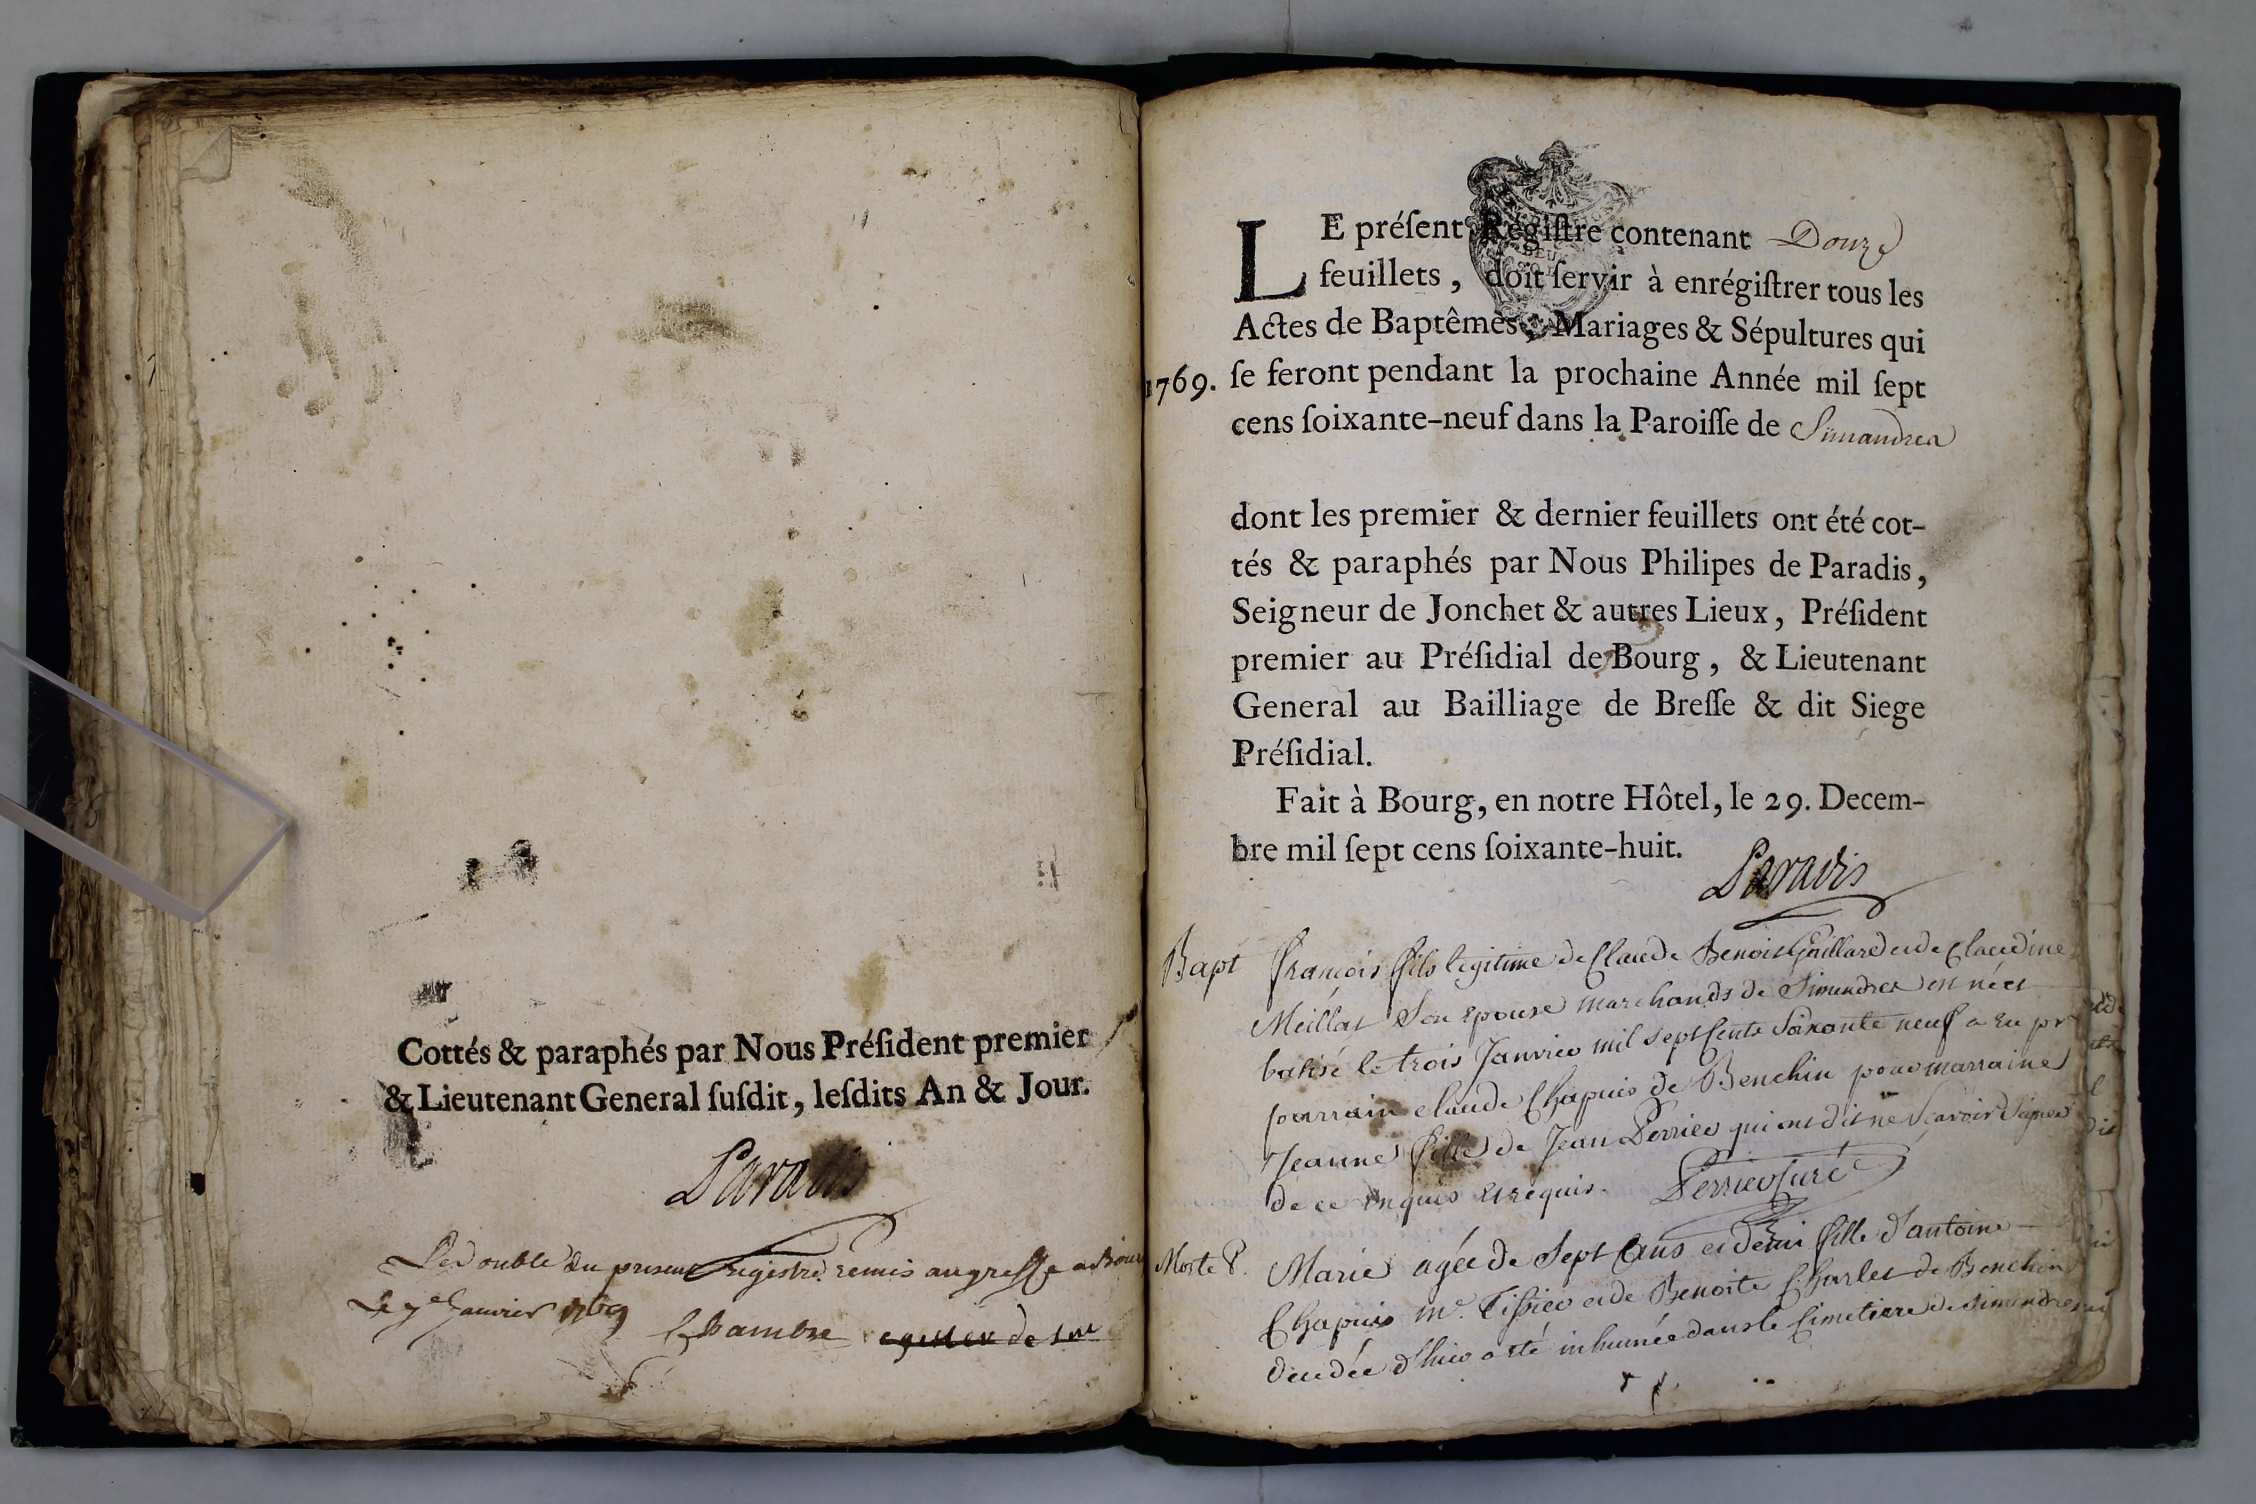 Cottés & paraphés par Nous Préſident premier
& Lieutenant General ſuſdit, leſdits An & Jour.
Paradis
Le double du present registre remis au greffe a Bourg
Le 7e Janvier 1769 Chambre
LE préſent Régiſtre contenant Douze
feuillets, doit ſervir à enrégiſtrer tous les
Actes de Baptêmes, Mariages & Sépultures qui
1769. ſe feront pendant la prochaine Année mil ſept
cens ſoixante-neuf dans la Paroiſſe de Simandres
dont les premier & dernier feuillets ont été cot-
tés & paraphés par Nous Philipes de Paradis,
Seigneur de Jonchet & autres Lieux, Préſident
premier au Préſidial de Bourg, & Lieutenant
General au Bailliage de Breſſe & dit Siege
Préſidial.
Fait à Bourg, en notre Hôtel, le 29. Decem-
bre mil ſept cens ſoixante-huit.
Paradis
Bapt François fils legitime de Claude Benoit Gaillard et de Claudine
Meillat Son epouse marchands de Simandres est né et
batisé le trois Janvier mil sept cents Soixante neuf a eu pr
parrain claude Chapuis de Benchin pour marraine
Jeanne fille de Jean Perrier qui ont dit ne Sçavoir Signer
de ce enquis et requis. Perrier Curé
Morte P. Marie agée de Sept ans et demi fille d'antoine
Chapuis me. Tissier et de Benoite Charlet de Benchin
decedée d'hier a eté inhumée dans le Cimetiere de Simandres